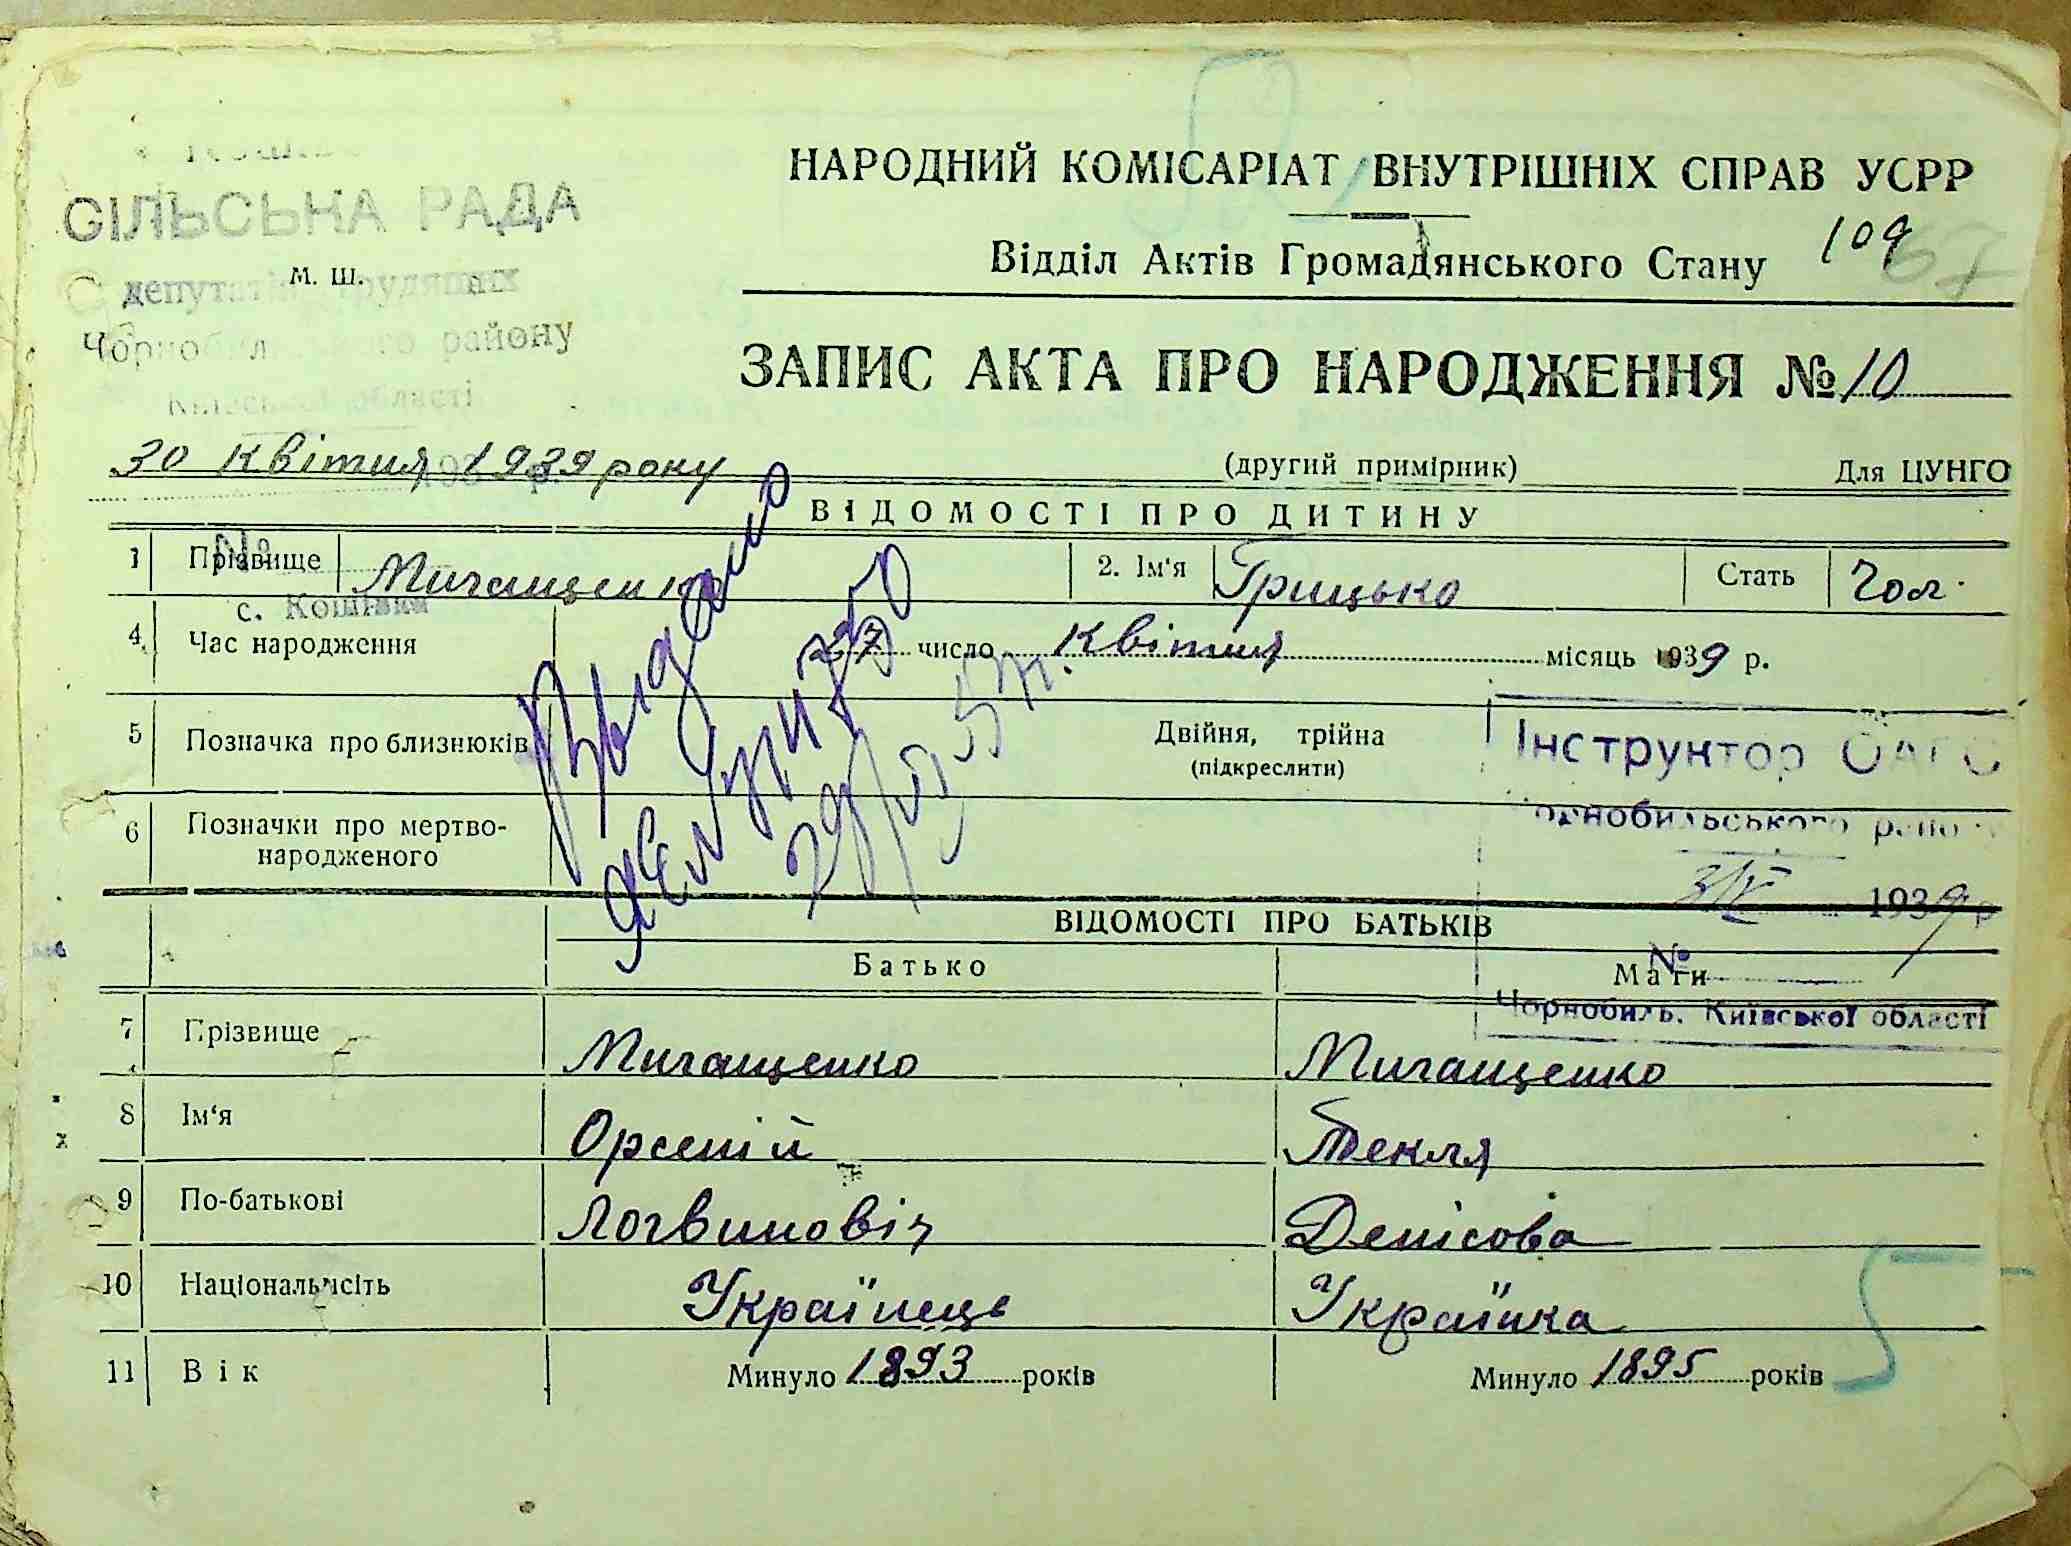 СІЛЬСЬКА РАДА
депутатів трудящих
М. Ш.
Чорнобильського району
Київської області
НАРОДНИЙ КОМІСАРІАТ ВНУТРІШНІХ СПРАВ УСРР
Відділ Актів Громадянського Стану
109
67
ЗАПИС АКТА ПРО НАРОДЖЕННЯ № 10
30 квітня 1939 року (другий примірник) Для ЦУНГО
ВІДОМОСТІ ПРО ДИТИНУ
1 Прізвище Мигащенко 2. Ім'я Грицько Стать Чол.
№
с. Кошівка
4 Час народження 27 число Квітня місяць 1939 р.
5 Позначка про близнюків Двійня, трійна
(підкреслити)
6 Позначки про мертво-
народженого
Выдано
Інструктор ОАГС
Чорнобильського району
1939 р
№
Чорнобиль, Київської області
ВІДОМОСТІ ПРО БАТЬКІВ
Батько Мати
7 Прізвище Мигащенко Мигащенко
8 Ім'я Орсеній Текля
9 По-батькові Логвиновіч Денісова
10 Національність Українець Українка
11 Вік Минуло 1893 років Минуло 1895 років
5